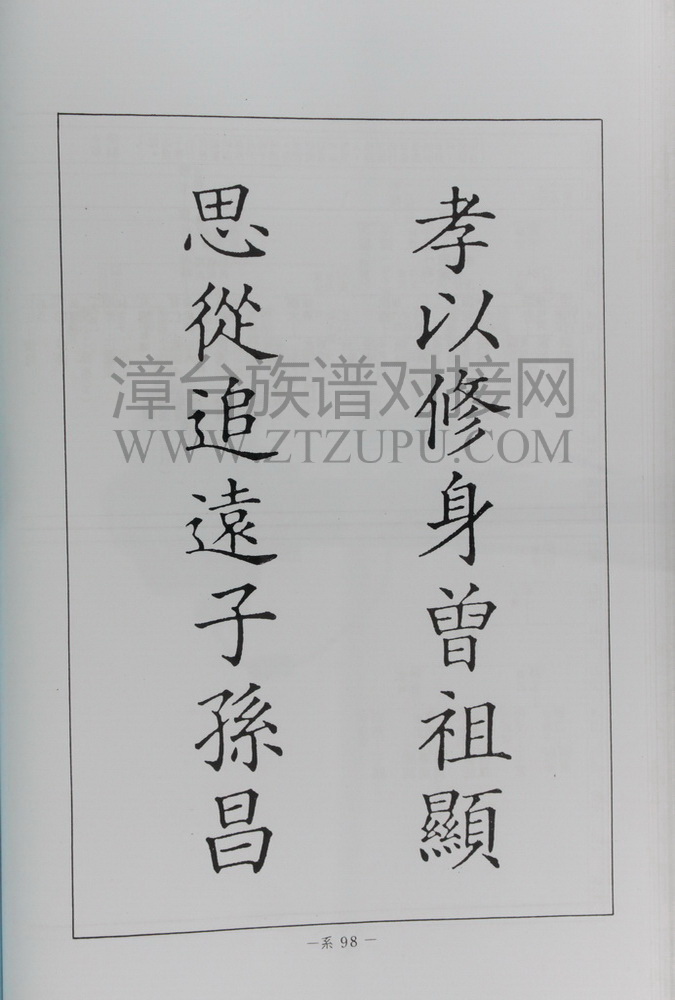 孝以修身曾祖顯
思從追遠子孫昌
漳台族谱对接网
WWW.ZTZUPU.COM
—系 98—